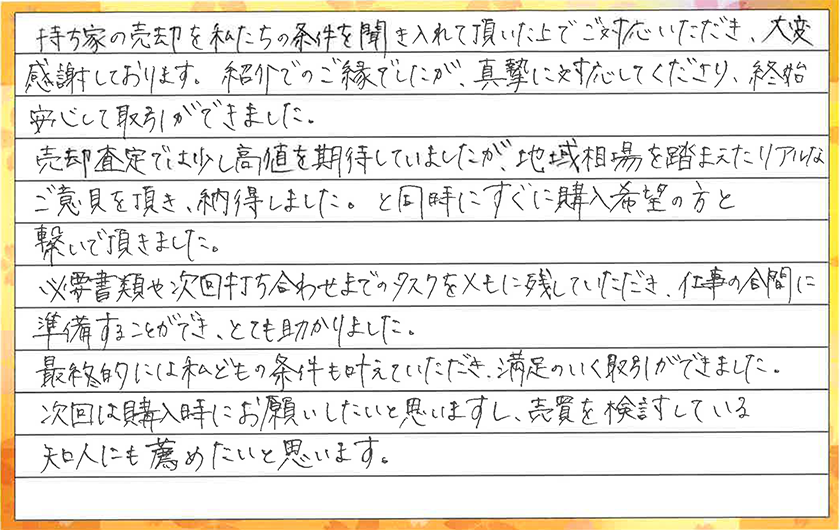 持ち家の売却を私たちの条件を聞き入れて頂いた上でご対応いただき、大変
感謝しております。紹介でのご縁でしたが、真摯に対応してくださり、終始
安心して取引ができました。
売却査定では少し高値を期待していましたが、地域相場を踏まえたリアルな
ご意見を頂き、納得しました。と同時にすぐに購入希望の方と
繋いで頂きました。
必要書類や次回打ち合わせまでのタスクをメモに残していただき、仕事の合間に
準備することができ、とても助かりました。
最終的には私どもの条件も叶えていただき、満足のいく取引ができました。
次回は購入時にお願いしたいと思いますし、売買を検討している
知人にも薦めたいと思います。